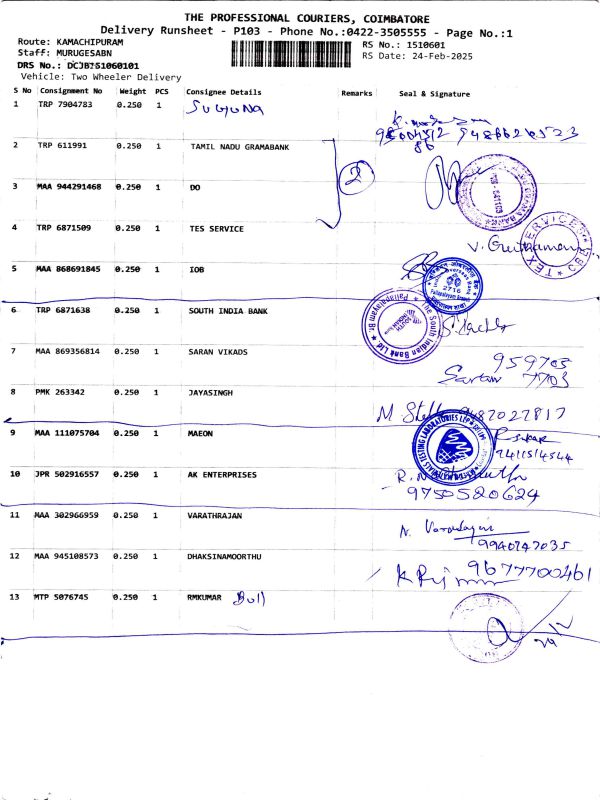 THE PROFESSIONAL COURIERS, COIMBATORE
Delivery Runsheet - P103 - Phone No.:0422-3505555 - Page No.:1
Route: KAMACHIPURAM
RS No.: 1510601
Staff: MURUGESABN
RS Date: 24-Feb-2025
DRS No.:
Vehicle: Two Wheeler Delivery
S No Consignment No Weight PCS Consignee Details Remarks Seal & Signature
1 TRP 7904783 0.250 1 SUGUNA
2 TRP 611991 0.250 1 TAMIL NADU GRAMABANK
2
3 MAA 944291468 0.250 1 DO
4 TRP 6871509 0.250 1 TES SERVICE
5 MAA 868691845 0.250 1 IOB
6 TRP 6871638 0.250 1 SOUTH INDIA BANK
The South Indian Bank Ltd. Pallapalayam Br.
7 MAA 869356814 0.250 1 SARAN VIKADS
959705
7703
8 PMK 263342 0.250 1 JAYASINGH
9487027817
9 MAA 111075704 0.250 1 MAEON
10 JPR 502916557 0.250 1 AK ENTERPRISES
9750580624
11 MAA 302966959 0.250 1 VARATHRAJAN
9940747035
12 MAA 945108573 0.250 1 DHAKSINAMOORTHU
9677700461
13 MTP 5076745 0.250 1 RMKUMAR